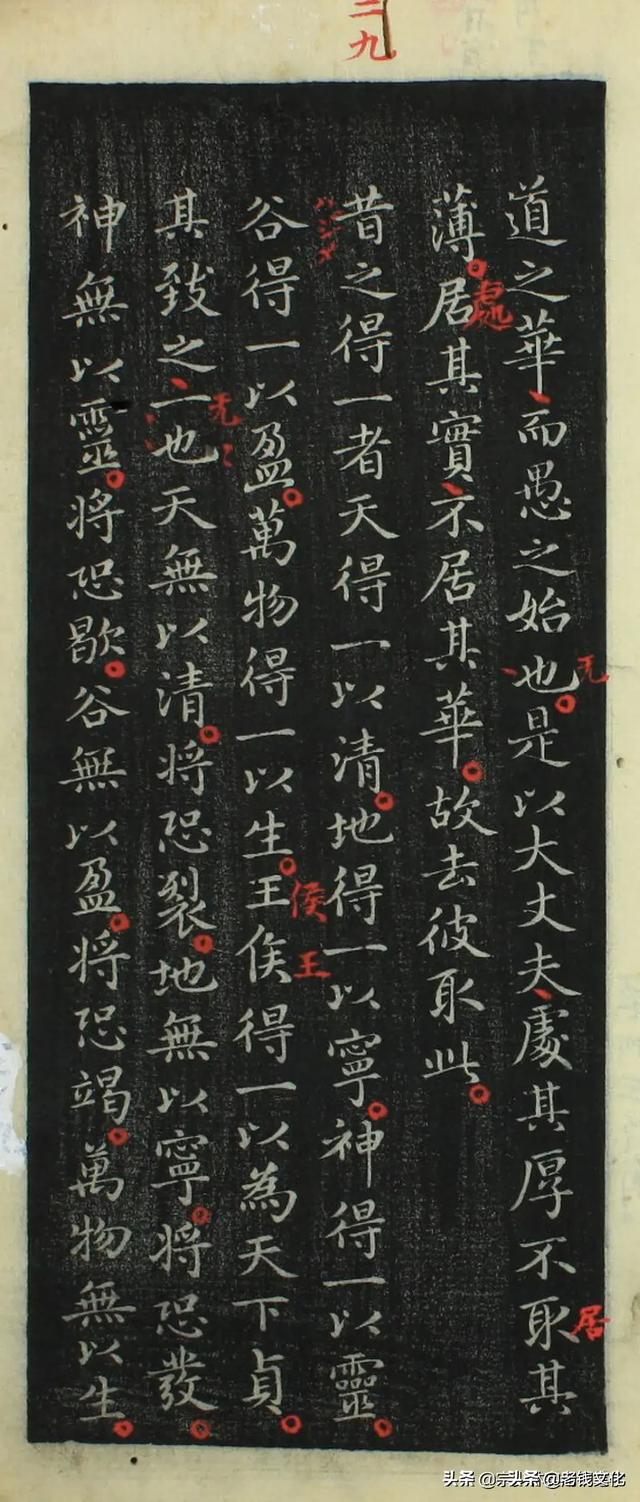 九
道之華而愚之始也是以大丈夫處其厚不取其
无
居
薄居其實不居其華故去彼取此
処
昔之得一者天得一以清地得一以寧神得一以靈
谷得一以盈萬物得一以生王侯得一以為天下貞
侯
王
其致之一也天無以清將恐裂地無以寧將恐發
无
神無以靈將恐歇谷無以盈將恐竭萬物無以生
头条 @老钱文化